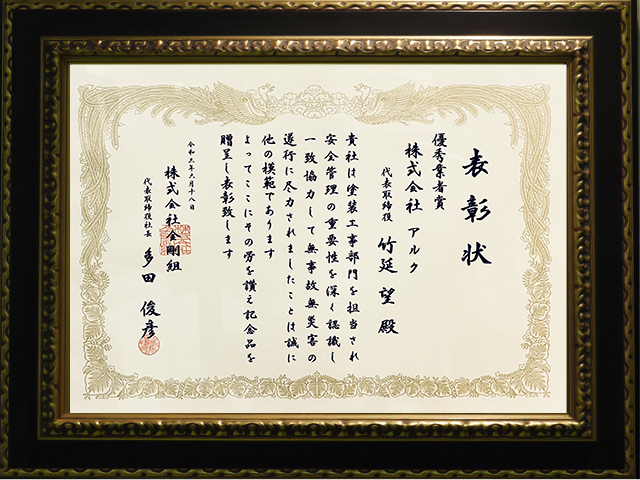 表彰状
優秀業者賞
株式会社 アルク
代表取締役 竹延 望 殿
貴社は塗装工事部門を担当され
安全管理の重要性を深く認識し
一致協力して無事故無災害の
遂行に尽力されましたことは誠に
他の模範であります
よってここにその労を讃え記念品を
贈呈し表彰致します
令和三年六月十八日
株式会社金剛組
代表取締役社長 多田 俊彦